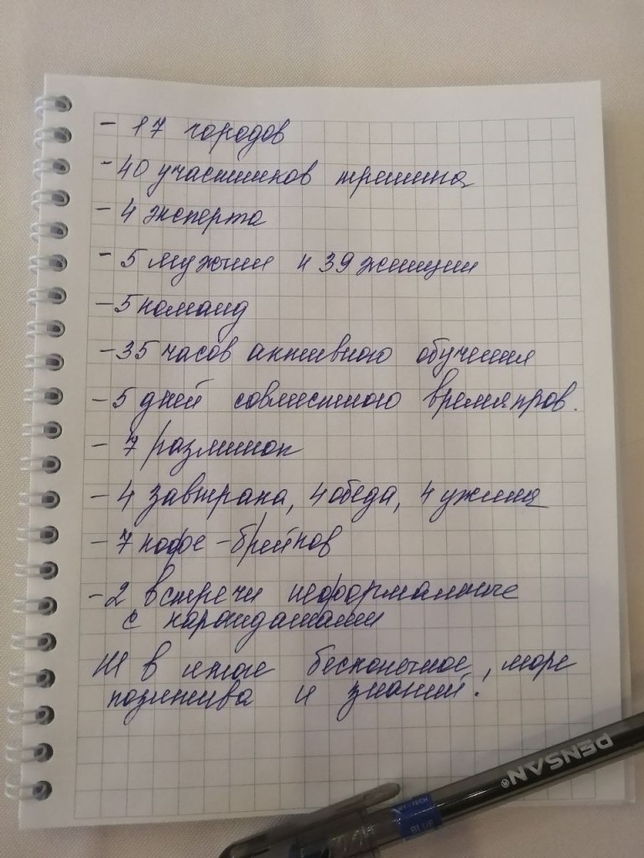 - 17 городов
- 40 участников тренинга
- 4 эксперта
- 5 мужчин и 39 женщин
- 5 команд
- 35 часов активного обучения
- 5 дней совместного времяпров.
- 7 разминок
- 4 завтрака, 4 обеда, 4 ужина
- 7 кофе-брейков
- 2 встречи неформальные
с карандашами
И в итоге бесконечное, море
позитива и знаний.
PENSAN®